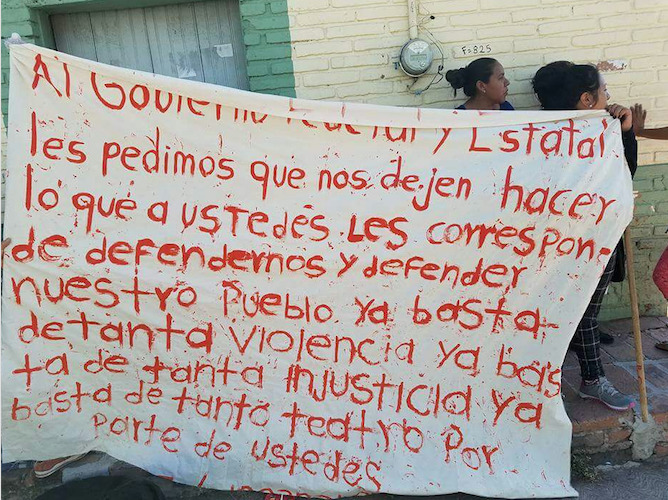 F=825
Al Gobierno Federal y Estatal
les pedimos que nos dejen hacer
lo que a ustedes les correspon-
de defendernos y defender
nuestro Pueblo ya basta-
de tanta violencia ya bas
ta de tanta INjusticia ya
basta de tanto teatro Por
parte de ustedes